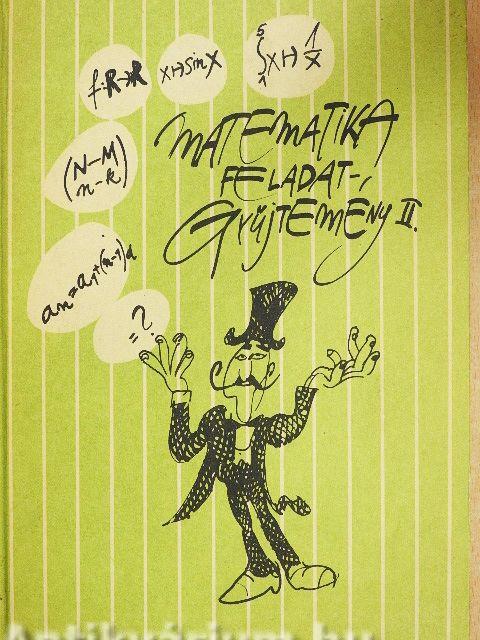 f:R→R
x↦sin x
5
∫ x↦ 1/x
1
(N-M)
(n-k)
an=a1+(n-1)d
=?
MATEMATIKA
FELADAT-
GYŰJTEMÉNY II.
Antikvárium.hu